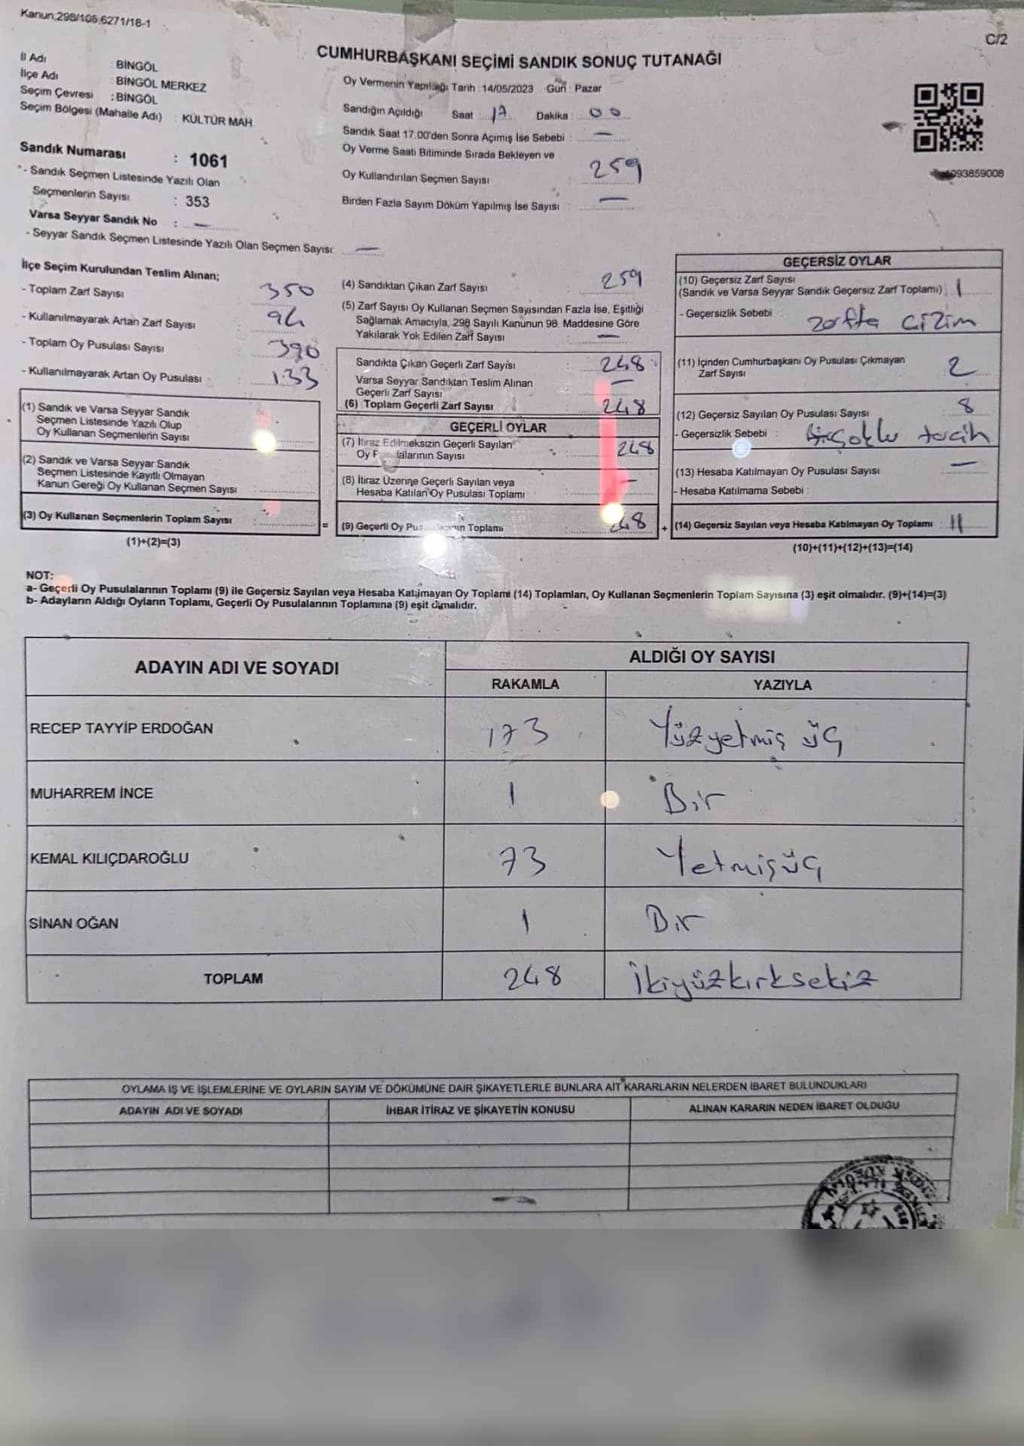 Kanun:298/105,6271/18-1
C/2
CUMHURBAŞKANI SEÇİMİ SANDIK SONUÇ TUTANAĞI
İl Adı : BİNGÖL
İlçe Adı : BİNGÖL MERKEZ
Seçim Çevresi : BİNGÖL
Seçim Bölgesi (Mahalle Adı) : KÜLTÜR MAH.
Sandık Numarası : 1061
- Sandık Seçmen Listesinde Yazılı Olan
Seçmenlerin Sayısı : 353
Varsa Seyyar Sandık No : —
- Seyyar Sandık Seçmen Listesinde Yazılı Olan Seçmen Sayısı: —
Oy Vermenin Yapıldığı Tarih : 14/05/2023 Gün : Pazar
Sandığın Açıldığı Saat 17 Dakika : 00
Sandık Saat 17.00'den Sonra Açımış İse Sebebi : —
Oy Verme Saati Bitiminde Sırada Bekleyen ve
Oy Kullandırılan Seçmen Sayısı 259
Birden Fazla Sayım Döküm Yapılmış İse Sayısı : —
093859008
İlçe Seçim Kurulundan Teslim Alınan;
- Toplam Zarf Sayısı : 350
- Kullanılmayarak Artan Zarf Sayısı : 94
- Toplam Oy Pusulası Sayısı : 390
- Kullanılmayarak Artan Oy Pusulası : 133
(1) Sandık ve Varsa Seyyar Sandık
Seçmen Listesinde Yazılı Olup
Oy Kullanan Seçmenlerin Sayısı
(2) Sandık ve Varsa Seyyar Sandık
Seçmen Listesinde Kayıtlı Olmayan
Kanun Gereği Oy Kullanan Seçmen Sayısı
(3) Oy Kullanan Seçmenlerin Toplam Sayısı
(1)+(2)=(3)
(4) Sandıktan Çıkan Zarf Sayısı : 259
(5) Zarf Sayısı Oy Kullanan Seçmen Sayısından Fazla İse, Eşitliği
Sağlamak Amacıyla, 298 Sayılı Kanunun 98. Maddesine Göre
Yakılarak Yok Edilen Zarf Sayısı : —
Sandıkta Çıkan Geçerli Zarf Sayısı : 248
Varsa Seyyar Sandıktan Teslim Alınan
Geçerli Zarf Sayısı : —
(6) Toplam Geçerli Zarf Sayısı : 248
GEÇERLİ OYLAR
(7) İtiraz Edilmeksizin Geçerli Sayılan
Oy Pusulalarının Sayısı : 248
(8) İtiraz Üzerine Geçerli Sayılan veya
Hesaba Katılan Oy Pusulası Toplamı : —
(9) Geçerli Oy Pusulalarının Toplamı : 248
=
+
GEÇERSİZ OYLAR
(10) Geçersiz Zarf Sayısı
(Sandık ve Varsa Seyyar Sandık Geçersiz Zarf Toplamı) : 1
- Geçersizlik Sebebi : zarfta çizim
(11) İçinden Cumhurbaşkanı Oy Pusulası Çıkmayan
Zarf Sayısı : 2
(12) Geçersiz Sayılan Oy Pusulası Sayısı : 8
- Geçersizlik Sebebi : Birçoklu tercih
(13) Hesaba Katılmayan Oy Pusulası Sayısı : —
- Hesaba Katılmama Sebebi :
(14) Geçersiz Sayılan veya Hesaba Katılmayan Oy Toplamı : 11
(10)+(11)+(12)+(13)=(14)
NOT:
a- Geçerli Oy Pusulalarının Toplamı (9) ile Geçersiz Sayılan veya Hesaba Katılmayan Oy Toplamı (14) Toplamları, Oy Kullanan Seçmenlerin Toplam Sayısına (3) eşit olmalıdır. (9)+(14)=(3)
b- Adayların Aldığı Oyların Toplamı, Geçerli Oy Pusulalarının Toplamına (9) eşit olmalıdır.
ADAYIN ADI VE SOYADI ALDIĞI OY SAYISI
RAKAMLA YAZIYLA
RECEP TAYYİP ERDOĞAN 173 Yüzyetmiş üç
MUHARREM İNCE 1 Bir
KEMAL KILIÇDAROĞLU 73 Yetmişüç
SİNAN OĞAN 1 Bir
TOPLAM 248 İkiyüzkırksekiz
OYLAMA İŞ VE İŞLEMLERİNE VE OYLARIN SAYIM VE DÖKÜMÜNE DAİR ŞİKAYETLERLE BUNLARA AİT KARARLARIN NELERDEN İBARET BULUNDUKLARI
ADAYIN ADI VE SOYADI İHBAR İTİRAZ VE ŞİKAYETİN KONUSU ALINAN KARARIN NEDEN İBARET OLDUĞU